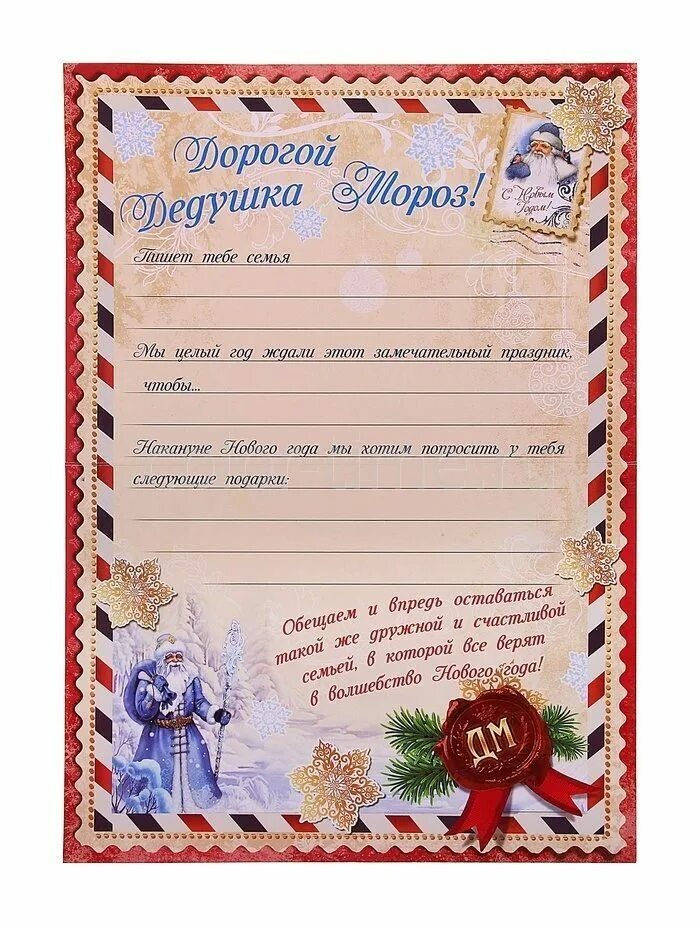 Дорогой
Дедушка Мороз!
С Новым
Годом!
Пишет тебе семья
Мы целый год ждали этот замечательный праздник,
чтобы...
Накануне Нового года мы хотим попросить у тебя
следующие подарки:
Обещаем и впредь оставаться
такой же дружной и счастливой
семьей, в которой все верят
в волшебство Нового года!
ДМ